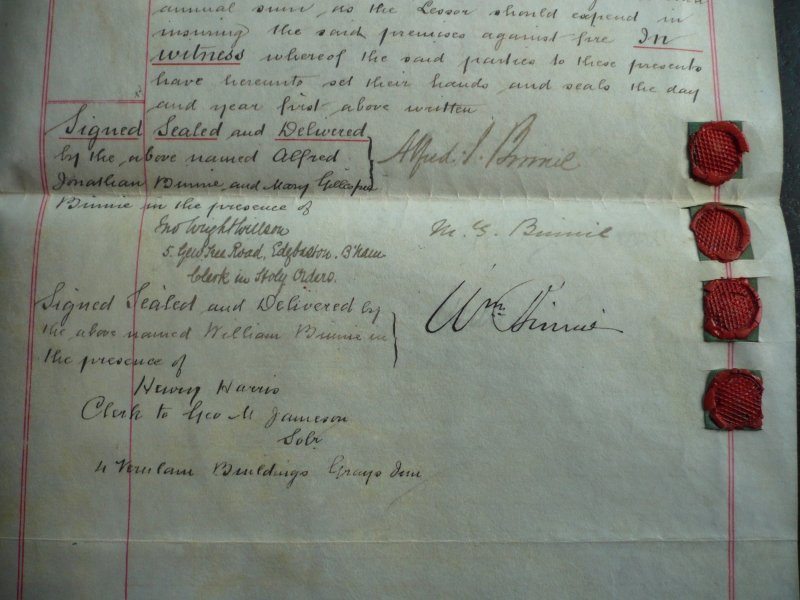 annual sum as the Lessor should expend in
insuring the said premises against fire In
witness whereof the said parties to these presents
have hereunto set their hands and seals the day
and year first above written
Signed Sealed and Delivered
by the above named Alfred
Jonathan Binnie and Mary Gillespie
Binnie in the presence of
Alfred J. Binnie
M. G. Binnie
Jno Wright Willson
5. Tree Road, Edgbaston, B'ham
Clerk in Holy Orders.
Signed Sealed and Delivered by
the above named William Binnie in
the presence of
Wm Binnie
Henry Harris
Clerk to Geo M Jameson
Solr
4 Verulam Buildings Grays Inn